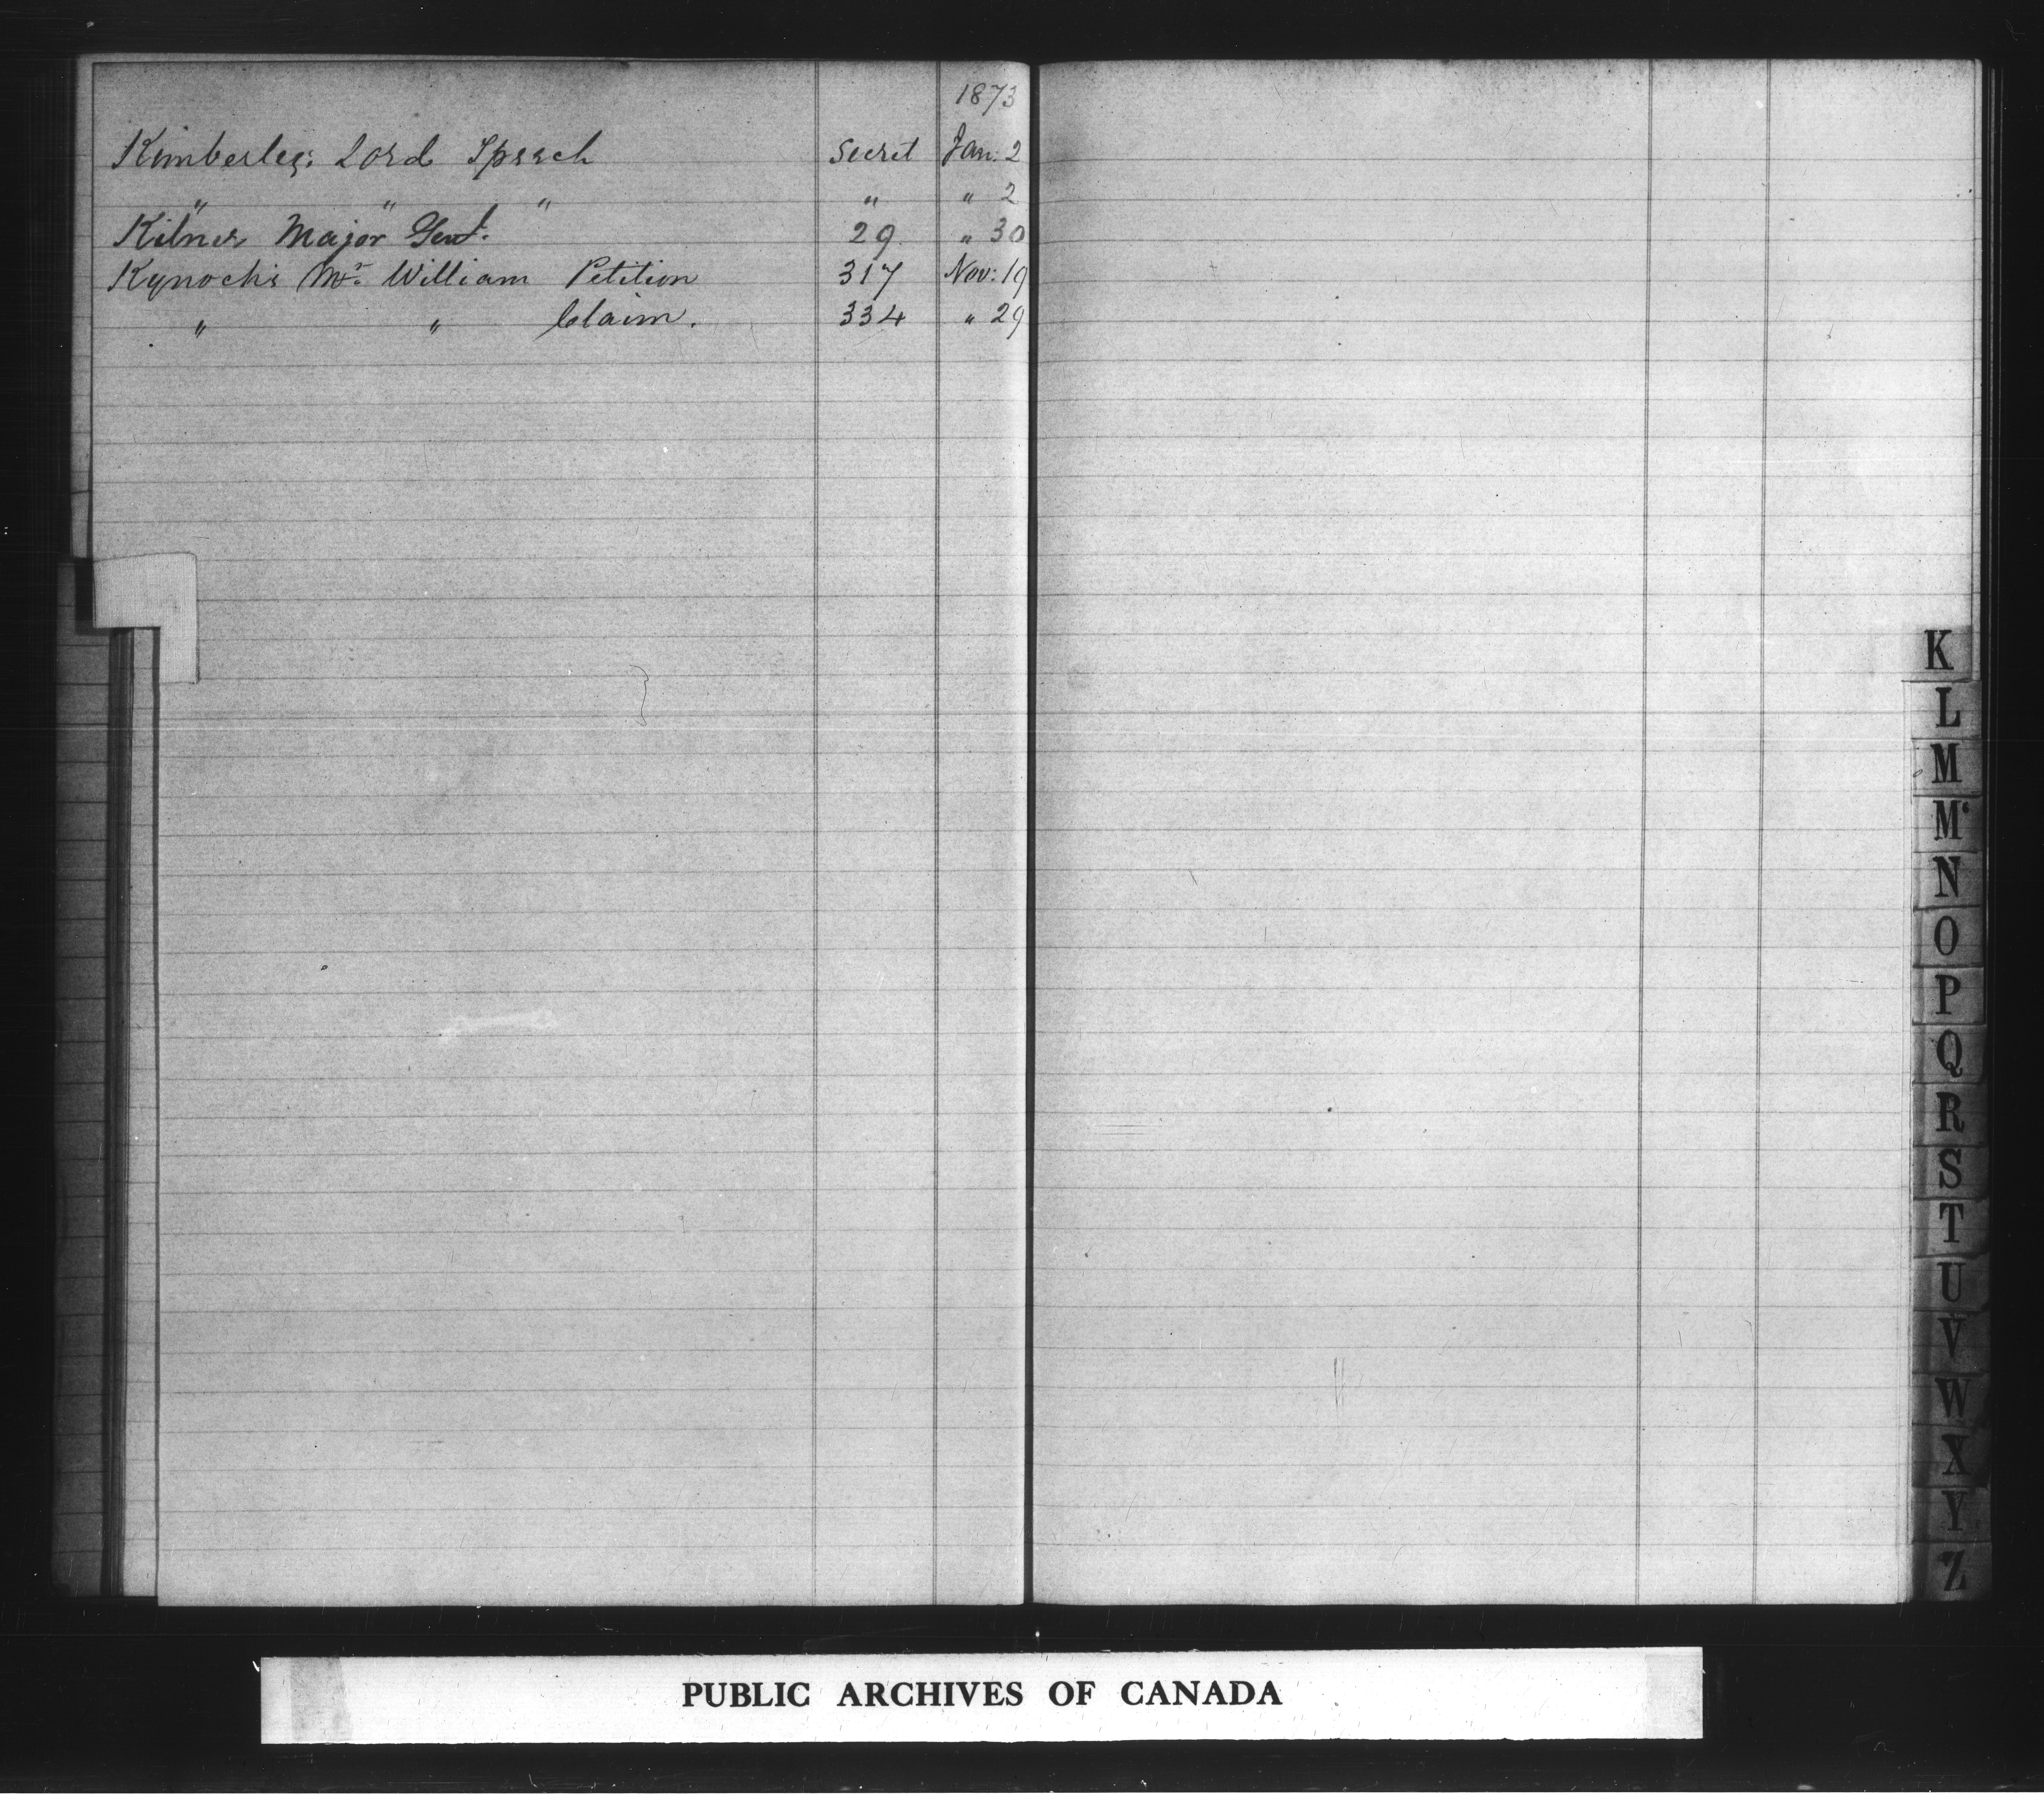 1873
Kimberley: Lord Speech Secret Jan: 2
" " " " " 2
Kilner Major Genl. 29 " 30
Kynoch's Mr. William Petition 317 Nov: 19
" " Claim. 334 " 29
K
L
M
Mc
N
O
P
Q
R
S
T
U
V
W
X
Y
Z
PUBLIC ARCHIVES OF CANADA